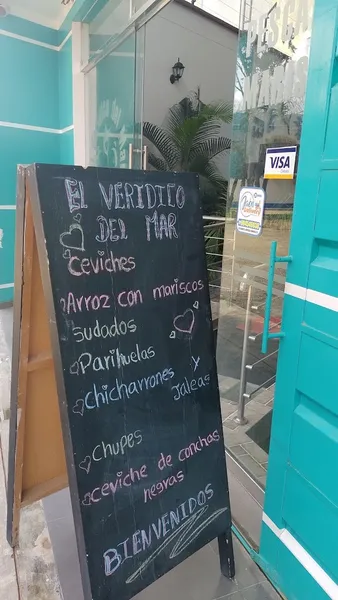 EL VERIDICO
DEL MAR
Ceviches
Arroz con mariscos
Sudados
Parihuelas
Chicharrones y
Jaleas
Chupes
ceviche de conchas
negras
BIENVENIDOS
VISA